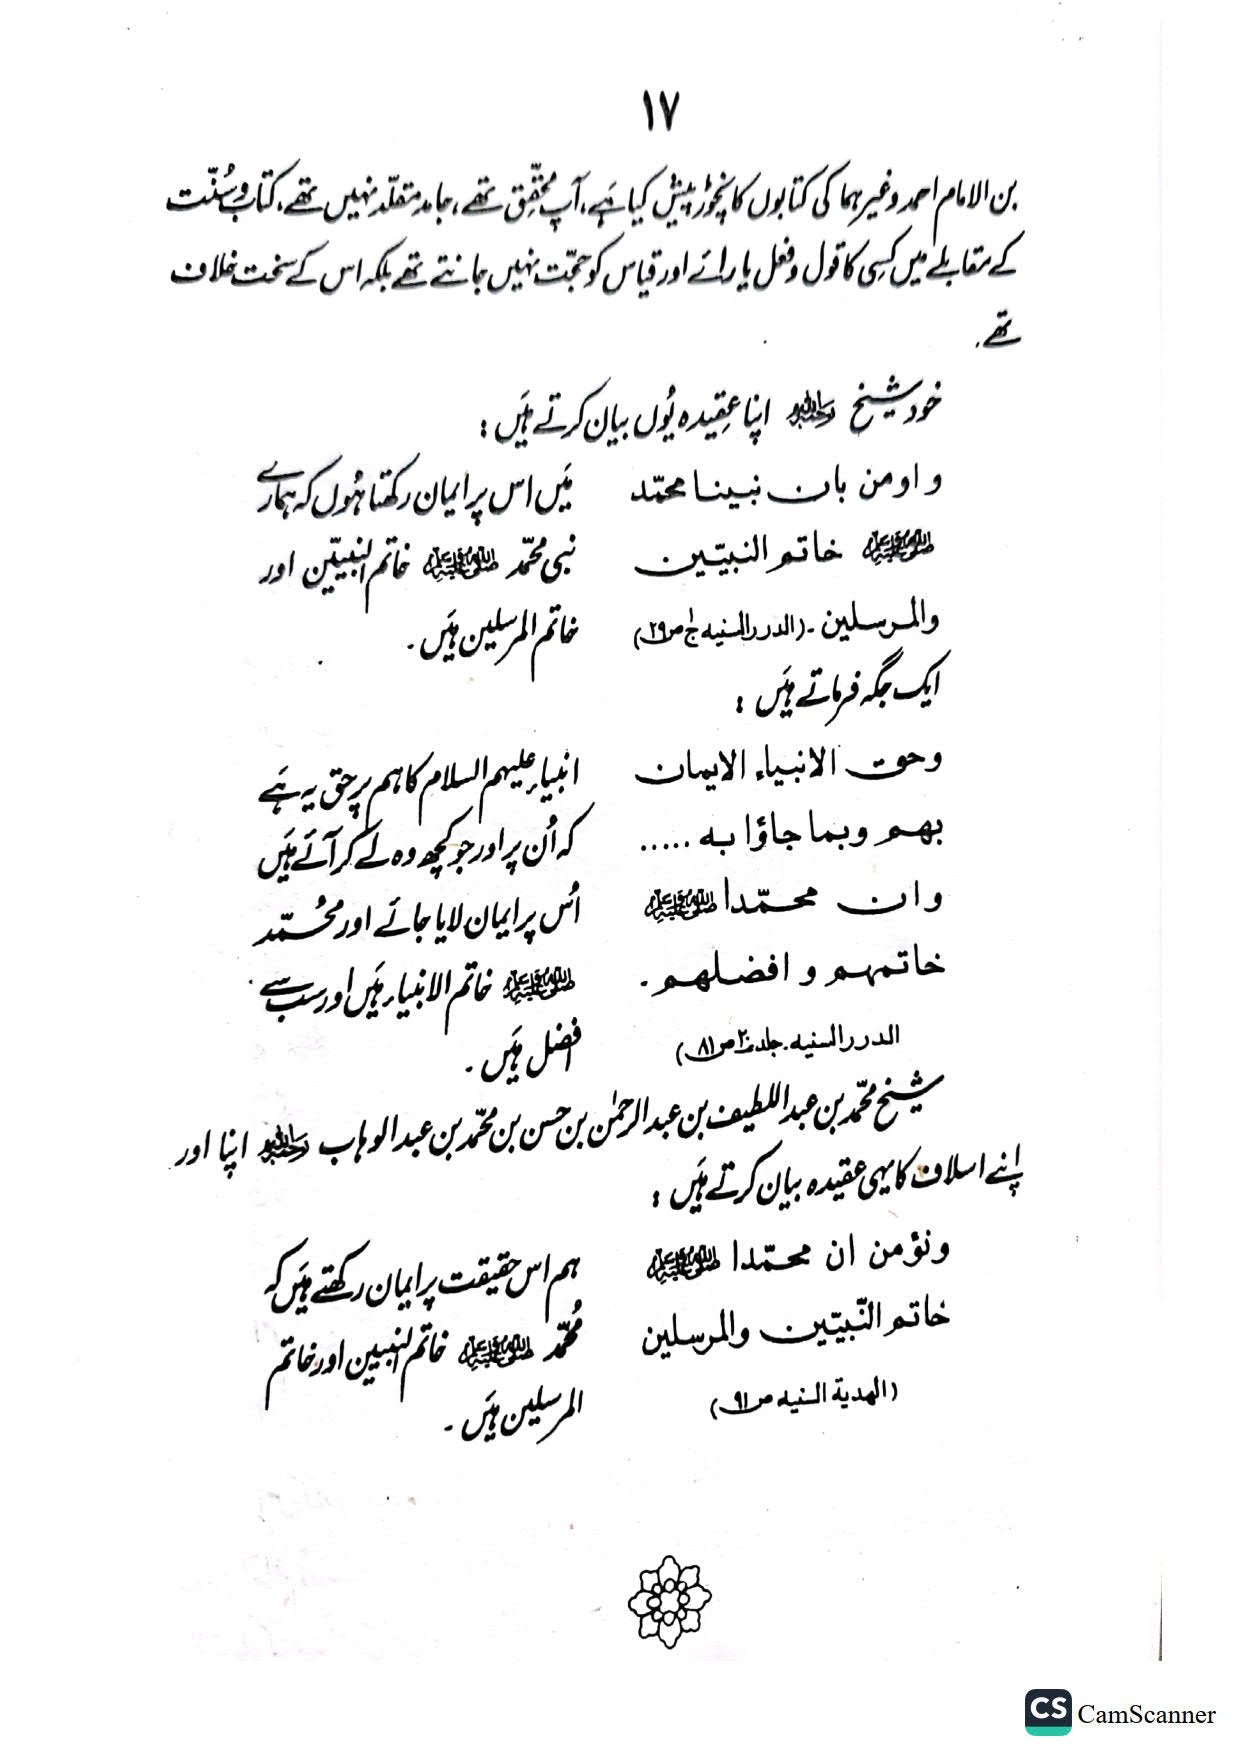 ۱۷
بن الامام احمد وغیرہما کی کتابوں کا نچوڑ پیش کیا ہے، آپ محقّق تھے، جامد مقلّد نہیں تھے، کتاب و سُنّت
کے مقابلے میں کسِی کا قول و فعل یا رائے اور قیاس کو حجّت نہیں جانتے تھے بلکہ اس کے سخت خلاف
تھے.
خود شیخ رحمہ اللہ اپنا عقِیدہ یُوں بیان کرتے ہیَں :
و اومن بان نبینا محمّد
ﷺ خاتم النبیّین
والمرسلین ۔ (الدرر السنیہ ج۱ ص۲۹)
میَں اس پر ایمان رکھتا ہُوں کہ ہمارے
نبی محمّد ﷺ خاتم النبیّین اور
خاتم المرسلین ہیَں ۔
ایک جگہ فرماتے ہیَں :
وحق الانبیاء الایمان
بھم وبما جاؤا بہ .....
وان محمّدا ﷺ
خاتمہم و افضلھم ۔
الدرر السنیہ ۔ جلد ۲ ص ۸۱)
انبیاء علیہم السلام کا ہم پر حق یہ ہَے
کہ اُن پر اور جو کچھ وہ لے کر آئے ہیَں
اُس پر ایمان لایا جائے اور محُمّد
ﷺ خاتم الانبیاء ہیَں اور سب سے
افضل ہیَں ۔
شیخ محمّد بن عبد اللطیف بن عبد الرحمٰن بن حسن بن محمّد بن عبد الوہاب رحمہ اللہ اپنا اور
اپنے اسلاف کا یہی عقیدہ بیان کرتے ہیَں :
ونؤمن ان محمّدا ﷺ
خاتم النّبیّین والمرسلین
(الھدیۃ السنیہ ص ۹۱)
ہم اس حقیقت پر ایمان رکھتے ہیَں کہ
محُمّد ﷺ خاتم النبیین اور خاتم
المرسلین ہیَں ۔
CS CamScanner